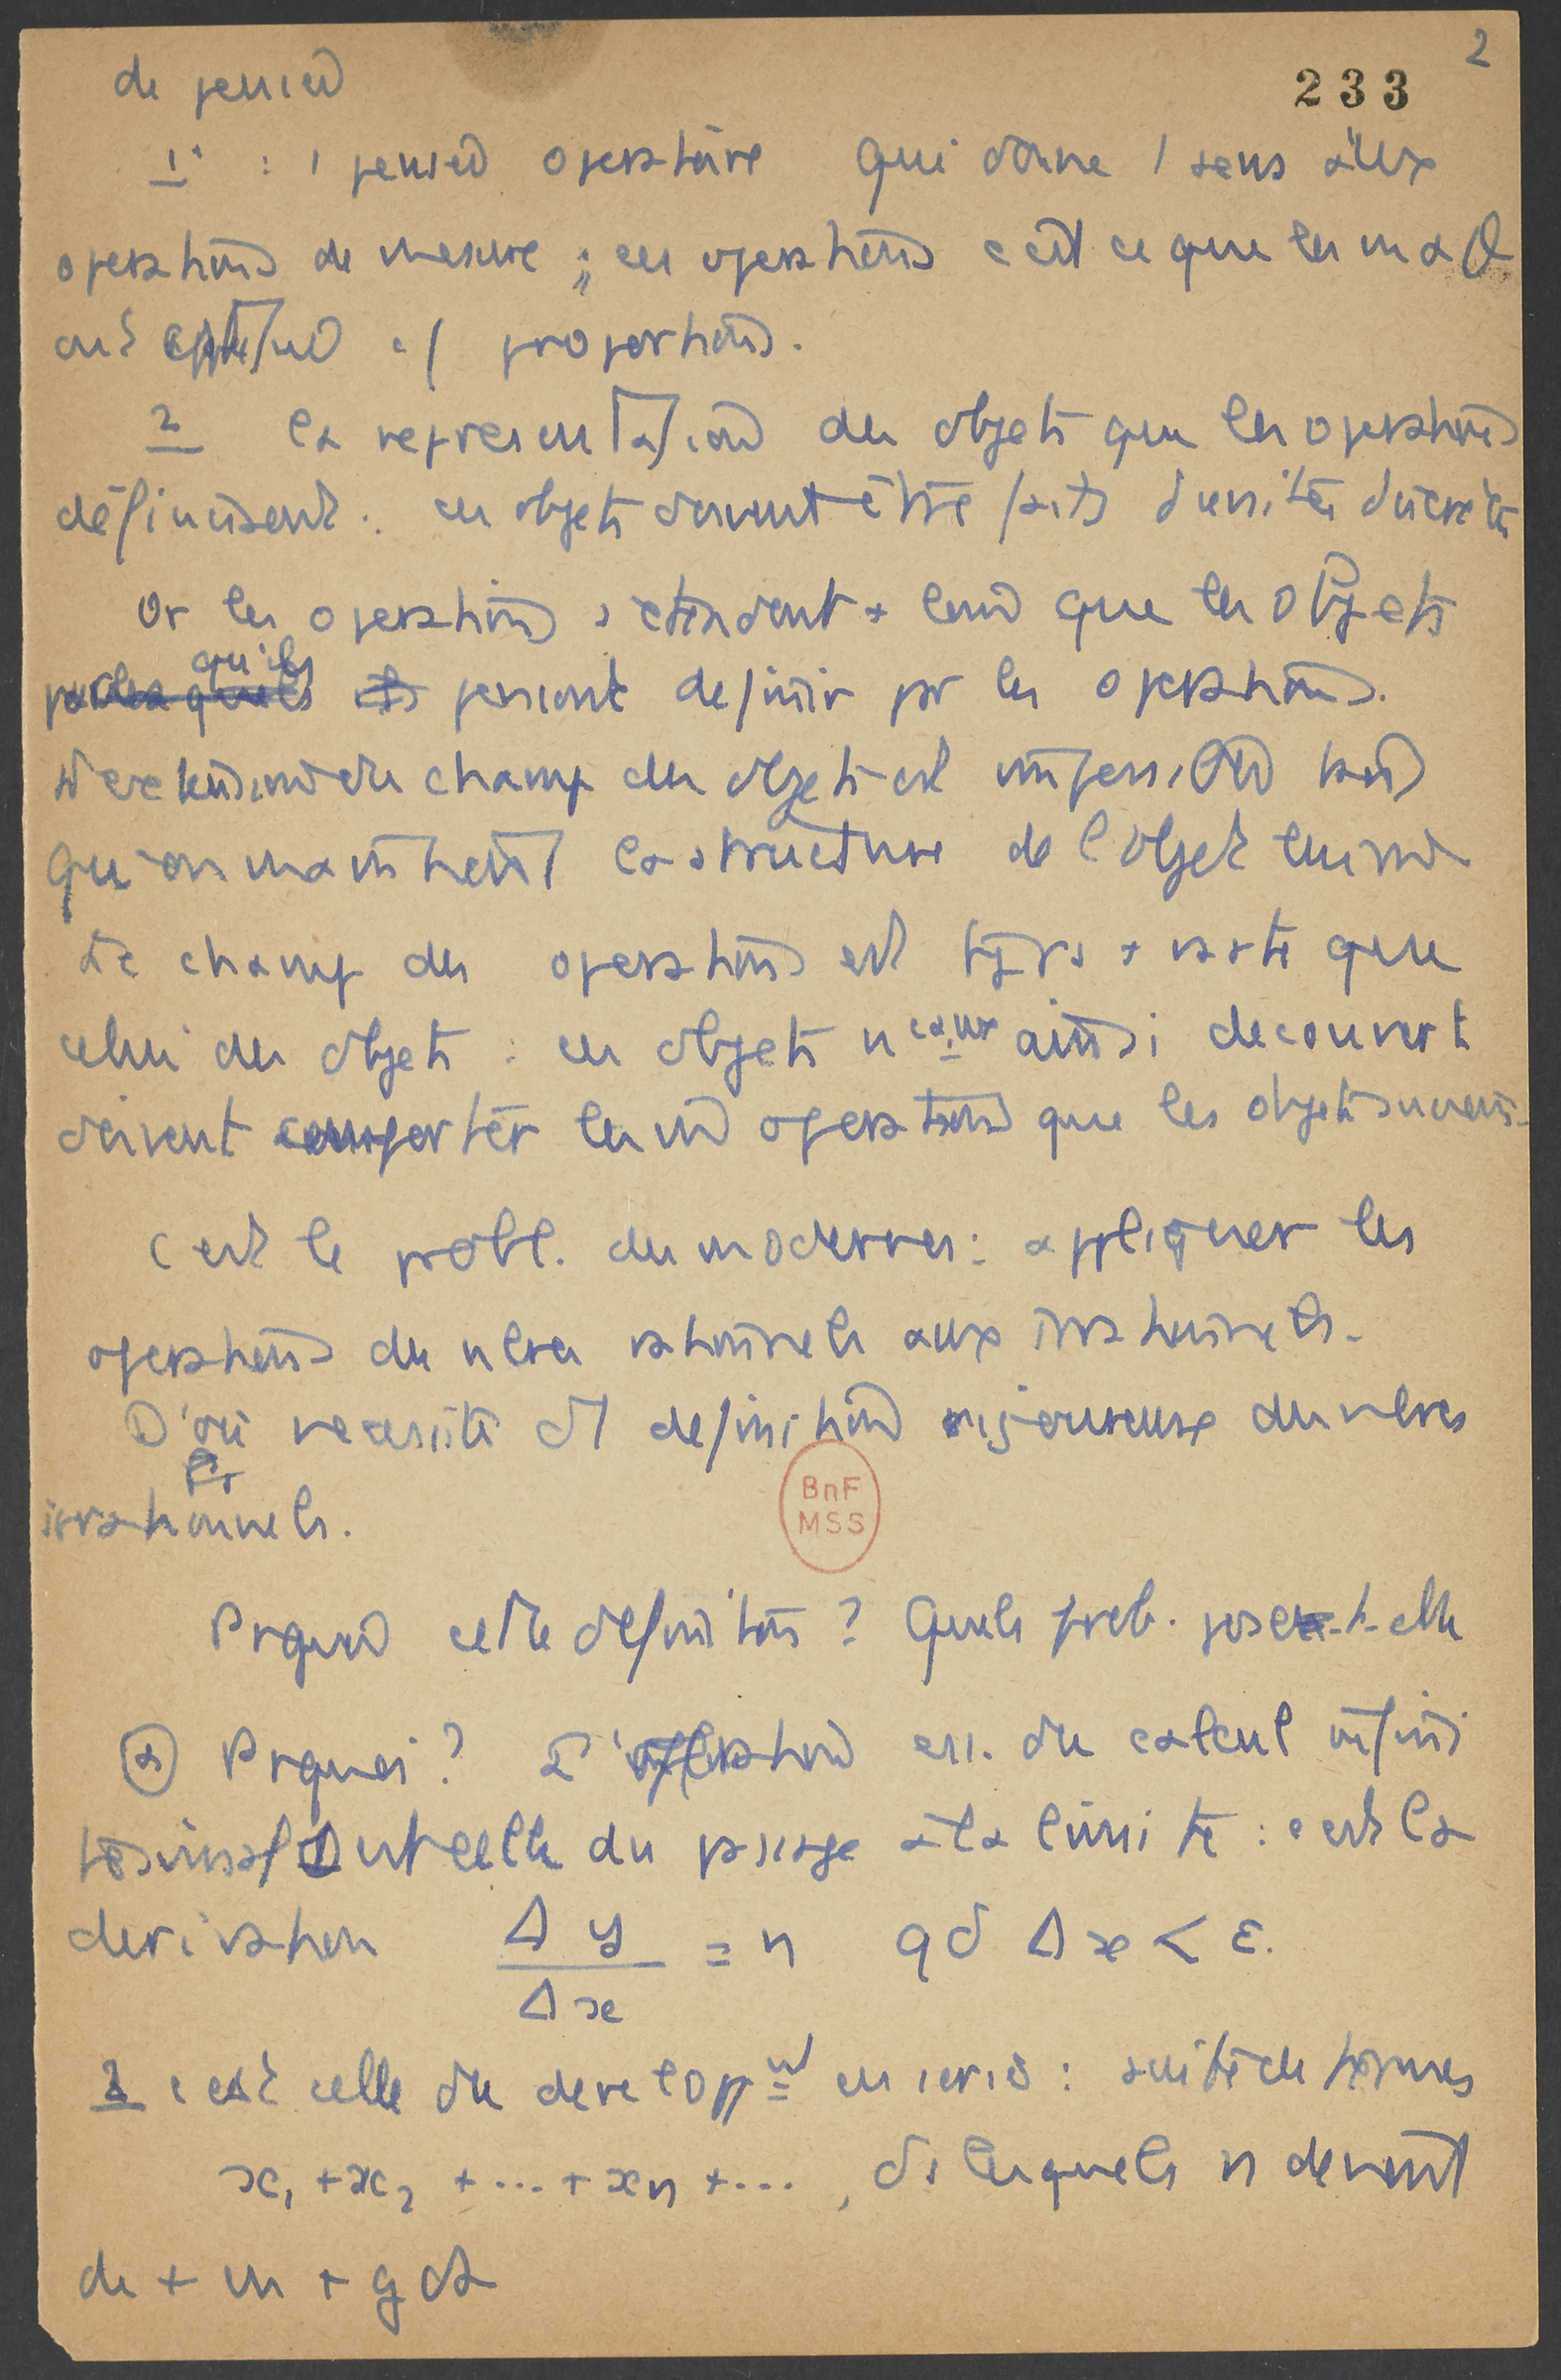 2
233
de pensée
1° : 1 pensée opératoire qui donne 1 sens aux
operations de mesure ; ces operations c est ce que les
ont / proportions.
2 la representation des objets que les operations
définissent : ces objets doivent être faits d unités discrètes
Or les operations s etendent + loin que les objets
qu'ils
pensent definir pr les operations.
du champ des objets est impossible tant
qu'on maintient la structure de l'objet lui md
Le champ des operations est tjrs + vaste que
celui des objets : ces objets nveaux ainsi decouvert
doivent comporter les md operations que les objets
c est le probl. des modernes : appliquer les
operations des nbres rationnels aux irrationnels.
D'où necessité d1 definition rigoureuse des nbres
irrationnels.
BnF
MSS
Prquoi cette definition ? Quels prob. pose-t-elle
Prquoi ? L'operation ess. du calcul infini
tesimal 1 est celle du passage à la limite : c est la
derivation Δy/Δx = n qd Δx < ε.
2 c est celle du developpt en serie : suite de termes
x₁ + x₂ + ... + xn + ..., ds lesquels n devient
de + en + gd